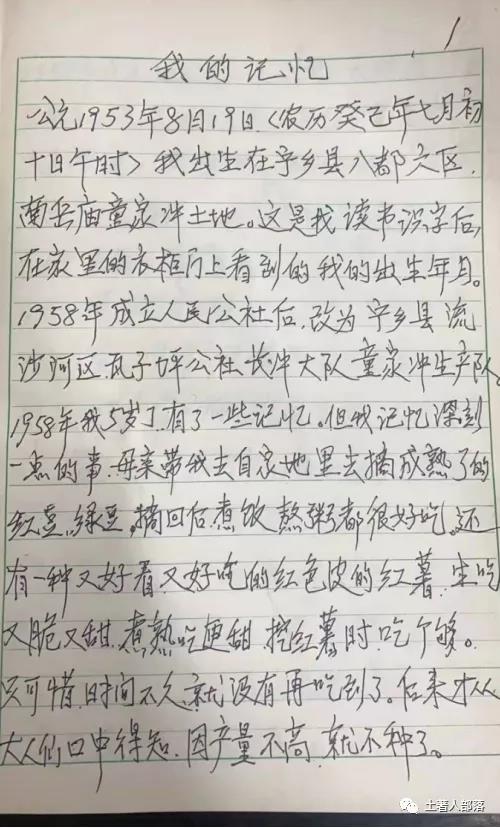 1
我的记忆
公元1953年8月19日〈农历癸己年七月初
十日午时〉我出生在宁乡县八都六区,
南岳庙童家冲土地。这是我读书识字后,
在家里的衣柜门上看到的我的出生年月。
1958年成立人民公社后,改为宁乡县流
沙河区瓦子坪公社长冲大队童家冲生产队。
1958年我5岁了,有了一些记忆。但我记忆深刻
一点的事,母亲带我去自家地里去摘成熟了的
红豆,绿豆,摘回后,煮饭熬粥都很好吃。还
有一种又好看又好吃的红色皮的红薯,生吃
又脆又甜,煮熟吃更甜,挖红薯时,吃个够。
只可惜,时间不久,就没有再吃到了。后来才从
大人们口中得知,因产量不高,就不种了。
土著人部落